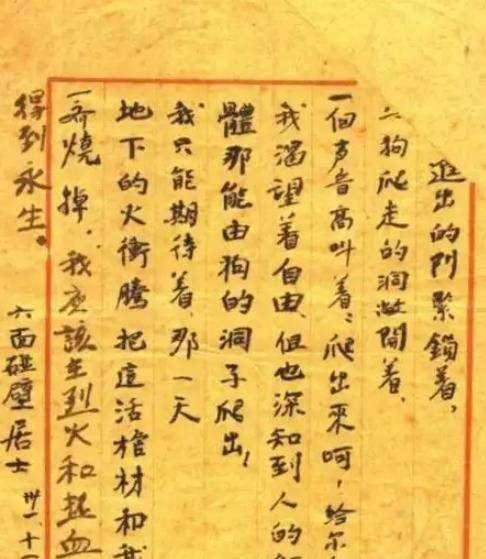 出的門緊鎖着,
狗爬走的洞敞開着,
一個声音高叫着:爬出來呵!給尔
我渴望着自由,但也深知到人的
體那能由狗的洞子爬出!
我只能期待着,那一天
地下的火衝騰把這活棺材和我
一齊燒掉,我应該在烈火和热血
得到永生。
六面碰壁居士 卅一、十